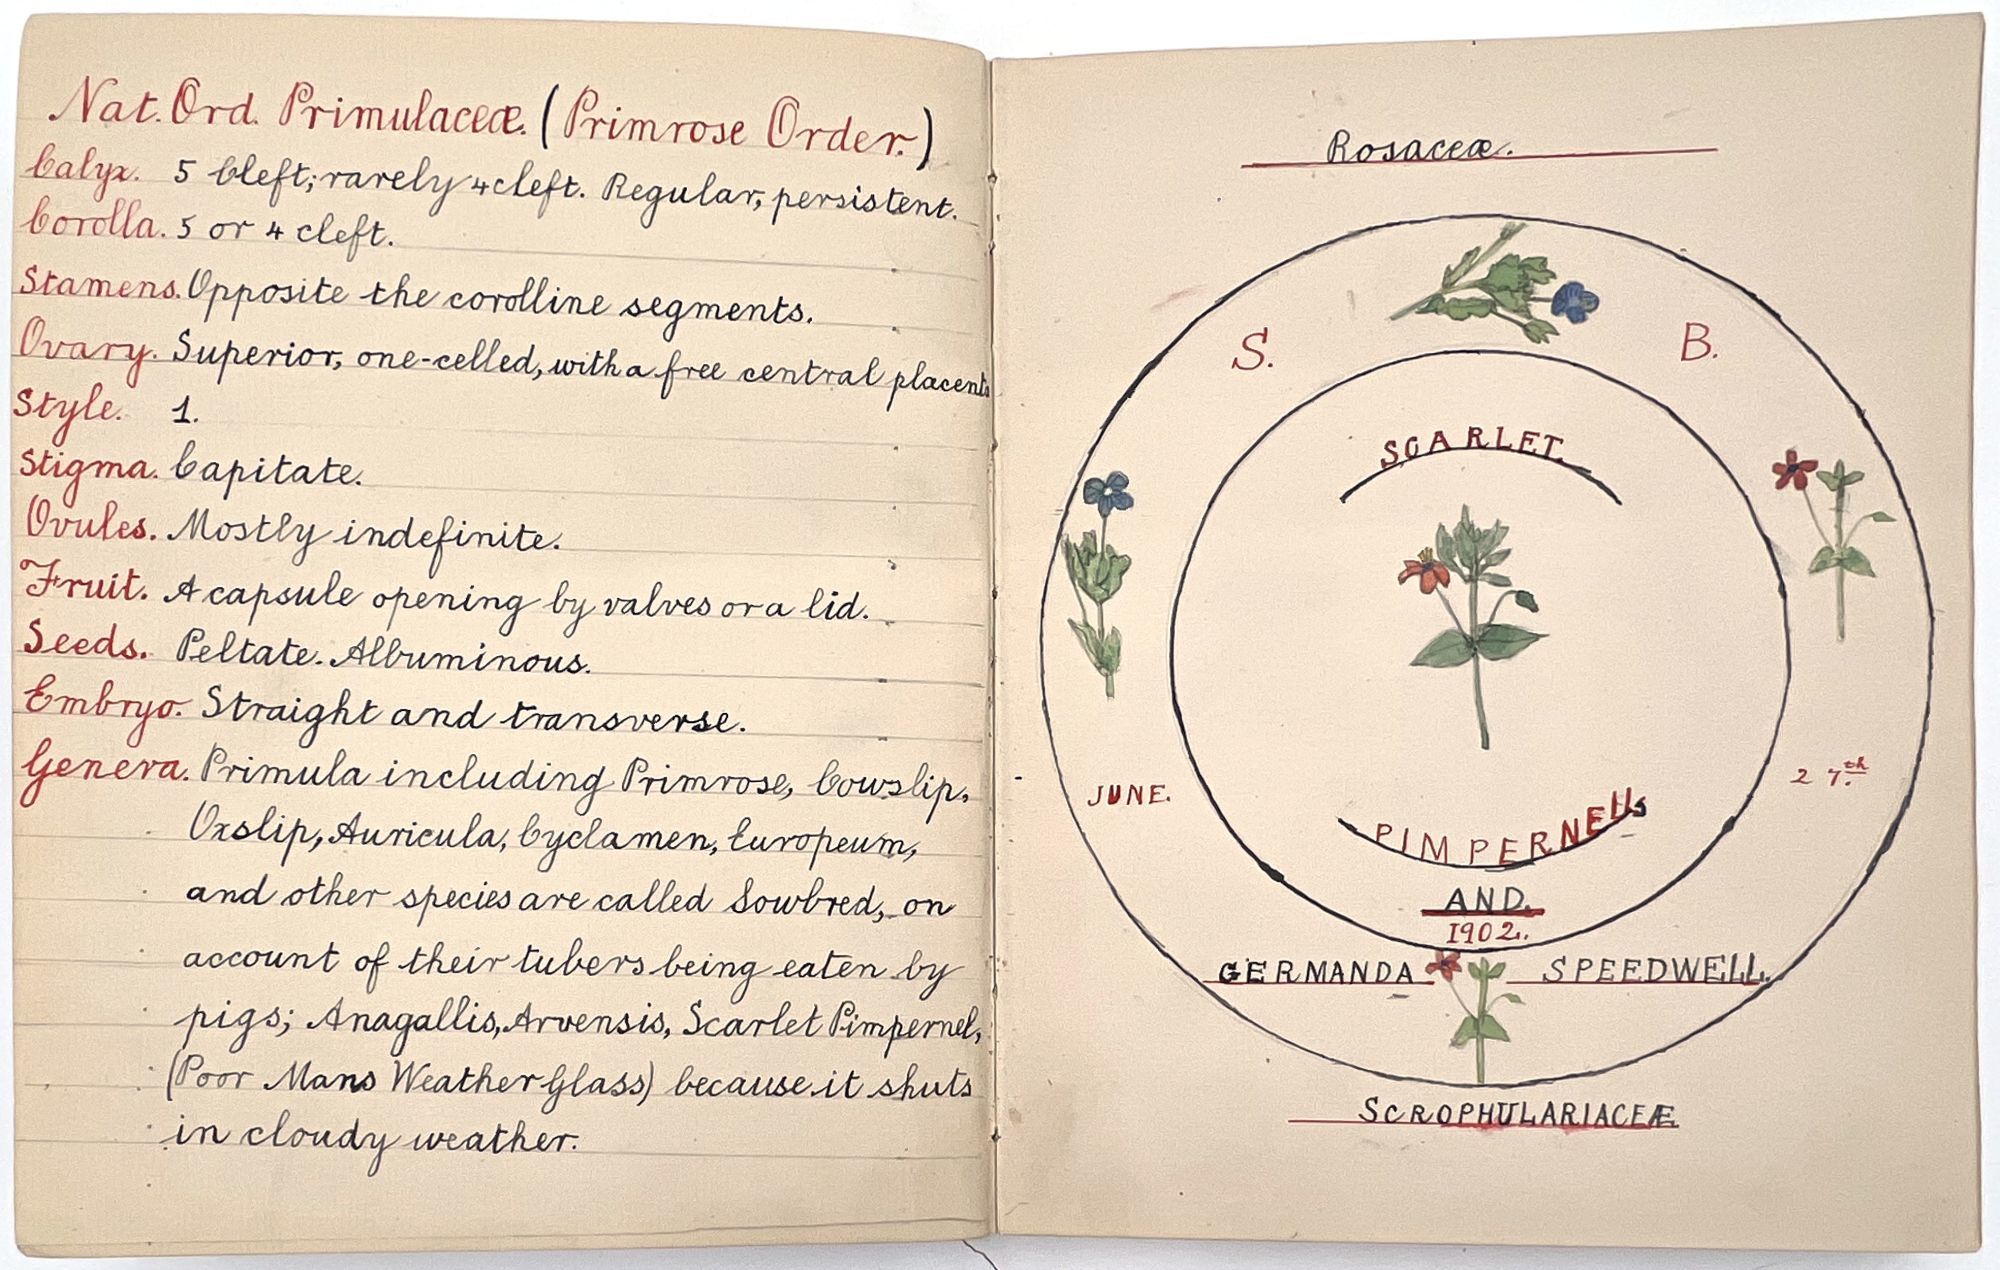 Nat. Ord. Primulaceæ. (Primrose Order.)
Calyx. 5 Cleft; rarely 4 cleft. Regular, persistent.
Corolla. 5 or 4 cleft.
Stamens. Opposite the corolline segments.
Ovary. Superior, one-celled, with a free central placenta
Style. 1.
Stigma. Capitate.
Ovules. Mostly indefinite.
Fruit. A capsule opening by valves or a lid.
Seeds. Peltate. Albuminous.
Embryo. Straight and transverse.
Genera. Primula including Primrose, Cowslip,
Oxslip, Auricula, Cyclamen, Europeum,
and other species are called Sowbred, on
account of their tubers being eaten by
pigs; Anagallis, Arvensis, Scarlet Pimpernel,
(Poor Mans Weather Glass) because it shuts
in cloudy weather.
Rosaceæ.
S. B.
SCARLET.
JUNE. 27th
PIMPERNELLS
AND.
1902.
GERMANDA SPEEDWELL.
SCROPHULARIACEÆ